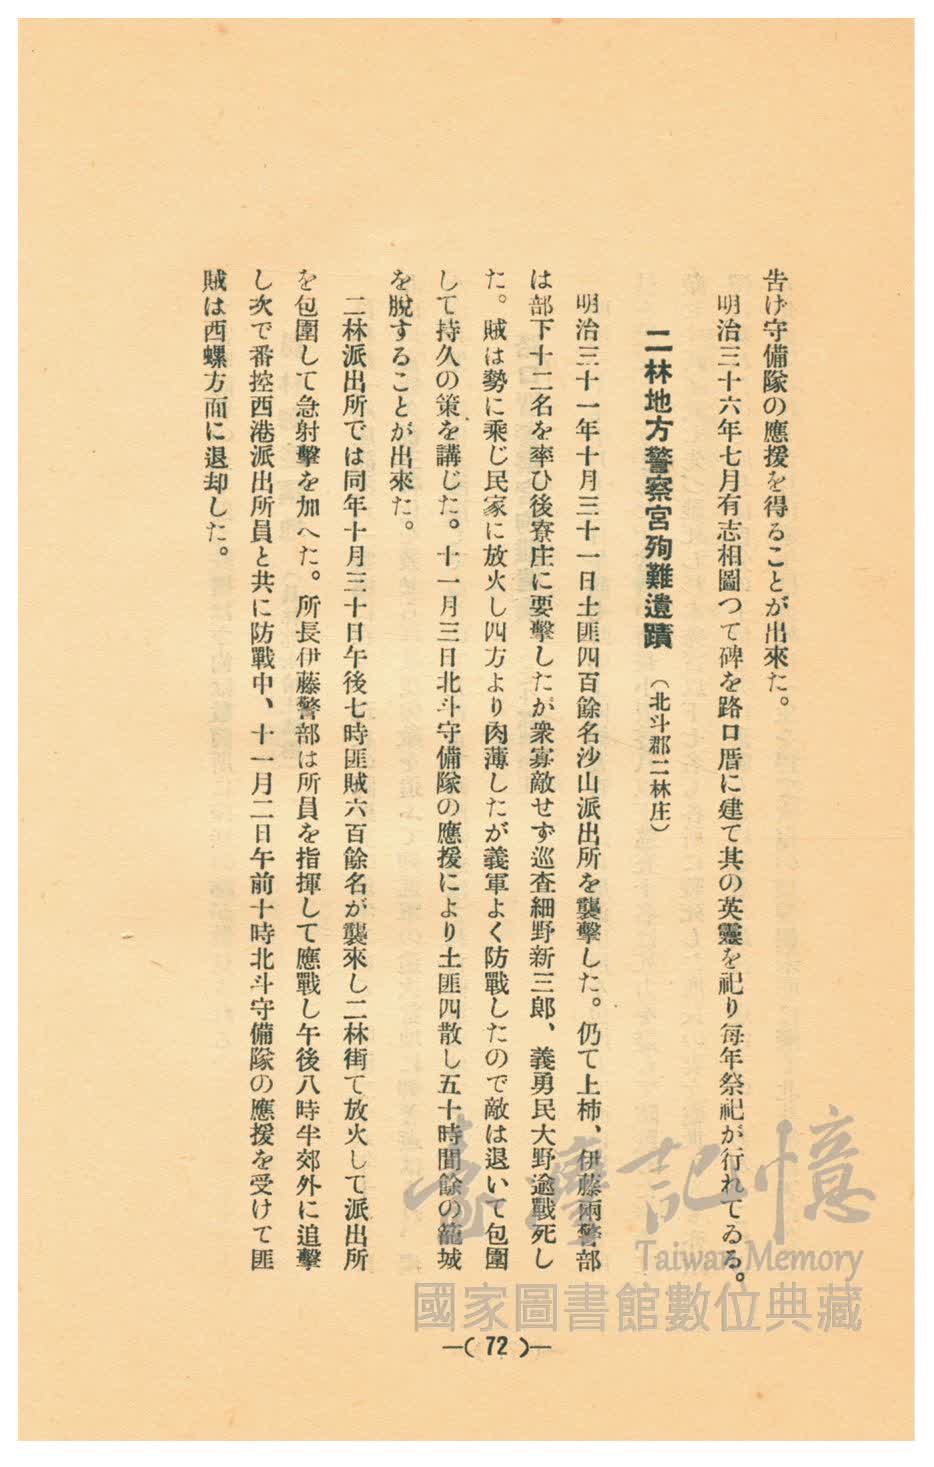 告げ守備隊の應援を得ることが出來た。
明治三十六年七月有志相圖つて碑を路口厝に建て其の英靈を祀り每年祭祀が行れてゐる。
二林地方警察官殉難遺蹟 （北斗郡二林庄）
明治三十一年十月三十一日土匪四百餘名沙山派出所を襲擊した。仍て上柿、伊藤兩警部
は部下十二名を率ひ後寮庄に要擊したが衆寡敵せず巡査細野新三郎、義勇民大野逾戰死し
た。賊は勢に乘じ民家に放火し四方より肉薄したが義軍よく防戰したので敵は退いて包圍
して持久の策を講じた。十一月三日北斗守備隊の應援により土匪四散し五十時間餘の籠城
を脫することが出來た。
二林派出所では同年十月三十日午後七時匪賊六百餘名が襲來し二林街て放火して派出所
を包圍して急射擊を加へた。所長伊藤警部は所員を指揮して應戰し午後八時半郊外に追擊
し次で番控西港派出所員と共に防戰中、十一月二日午前十時北斗守備隊の應援を受けて匪
賊は西螺方面に退却した。
—( 72 )—
臺灣記憶
Taiwan Memory
國家圖書館數位典藏